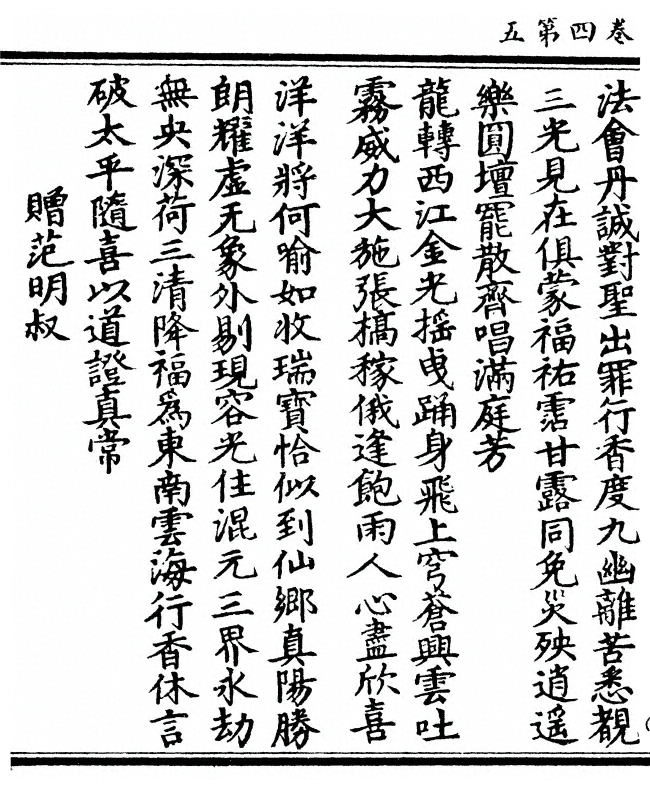 卷四第五
法會丹誠對聖出罪行香度九幽離苦悉覩
三光見在俱蒙福祐霑甘露同免災殃逍遥
樂圓壇罷散齊唱滿庭芳
龍轉西江金光摇曳踊身飛上穹蒼興雲吐
霧威力大施張槁稼俄逢飽雨人心盡欣喜
洋洋將何喻如收瑞寶恰似到仙鄉真陽勝
朗耀虚无象外剔現容光住混元三界永劫
無央深荷三清降福爲東南雲海行香休言
破太平隨喜以道證真常
贈范明叔